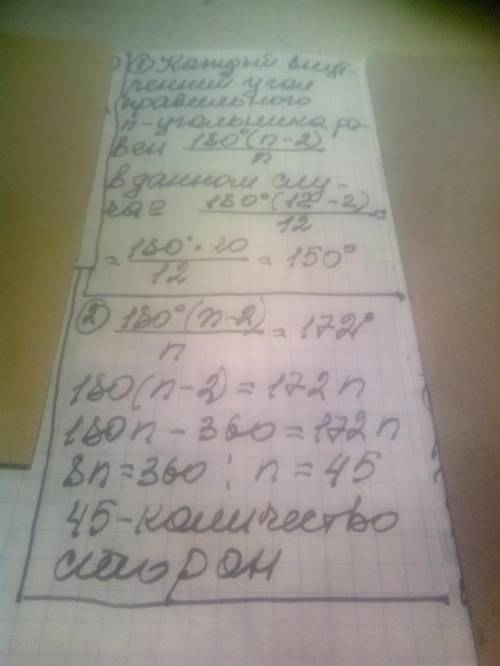 ① Каждый внут-
ренний угол
правильного
n-угольника ра-
вен 180°(n-2)/n
в данном слу-
чае 180°(12-2)/12 =
= 180°·10/12 = 150°
② 180°(n-2)/n = 172°
180(n-2) = 172n
180n - 360 = 172n
8n = 360; n = 45
45-количество
сторон